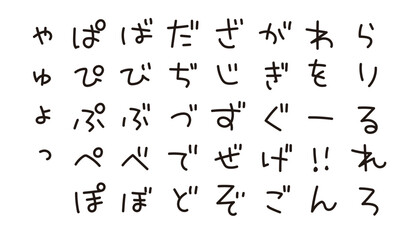 らりるれろ
わをー!!ん
がぎぐげご
ざじずぜぞ
だぢづでど
ばびぶべぼ
ぱぴぷぺぽ
ゃゅょっ